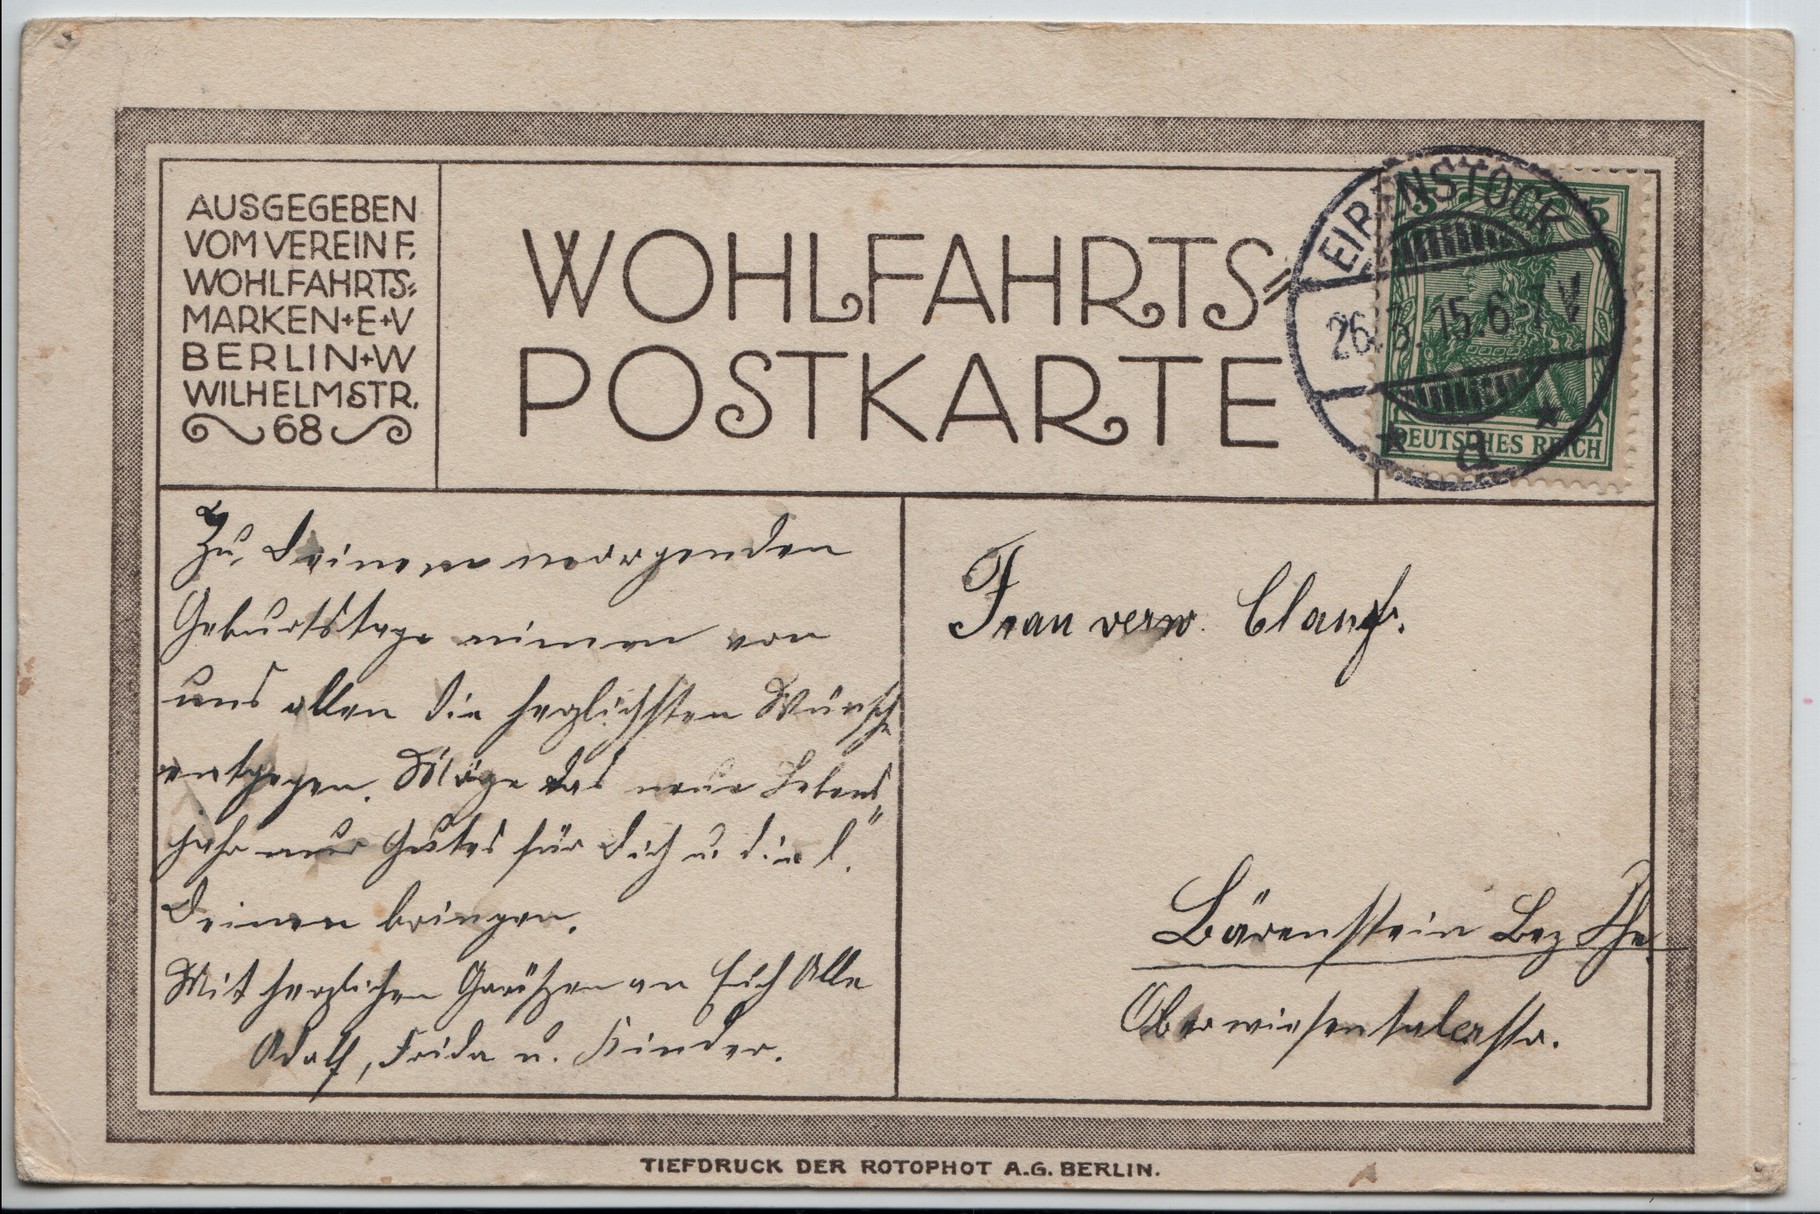 AUSGEGEBEN
VOM VEREIN F.
WOHLFAHRTS=
MARKEN+E+V
BERLIN+W
WILHELMSTR.
68
WOHLFAHRTS=
POSTKARTE
EIBENSTOCK
26.3.15.6-7V
* a *
5 5
DEUTSCHES REICH
Zu Deinem morgenden
Geburtstage nimm von
uns allen die herzlichsten Wünsche
entgegen. Möge das neue Lebens"
jahr nur Gutes für Dich u. die l.
Deinen bringen.
Mit herzlichen Grüßen an Euch Alle
Adolf, Frida u. Kinder.
Frau verw.
Bärenstein Bez
Oberwiesentalerstr.
TIEFDRUCK DER ROTOPHOT A.G. BERLIN.